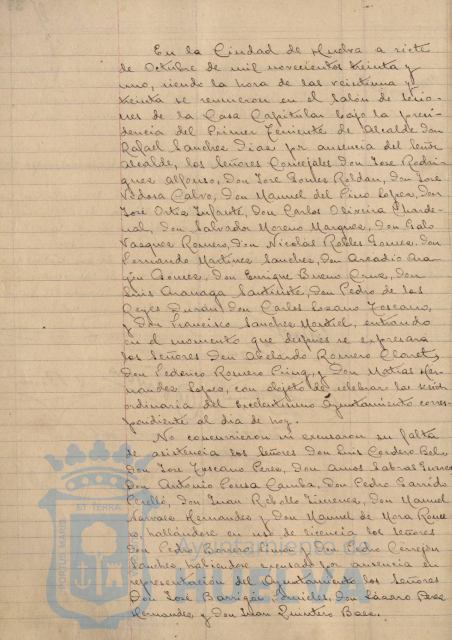 En la Ciudad de Huelva a siete
de Octubre de mil novecientos treinta y
uno, siendo la hora de las veintiuna y
treinta se reunieron en el Salón de Sesio-
nes de la Casa Capitular bajo la presi-
dencia del Primer Teniente de Alcalde Don
Rafael Sanchez Diaz por ausencia del Señor
Alcalde, los Señores Concejales Don Jose Rodri-
guez Alfonso, Don José Gomez Roldan, Don José
Calvo, Don Manuel del Pino Lopez, Don
José Ortiz Infante, Don Carlos Oliveira Charde-
nal, Don Salvador Moreno Marquez, Don Galo
Vazquez Romero, Don Nicolás Robles Gomez, Don
Fernando Martinez Sanchez, Don Arcadio Ara-
gón Gomez, Don Enrique Bueno Cruz, Don
Luis Don Pedro de los
Reyes Durán, Don Carlos Lozano Toscano,
y Don Francisco Sanchez Montiel, entrando
en el momento que despues se expresara
los Señores Don Abelardo Romero Claret,
Don Federico Romero y Don Matias Her-
nandez Lopez, con objeto de celebrar la sesión
ordinaria del Excelentisimo Ayuntamiento corres-
pondiente al dia de hoy.
No concurrieron ni excusaron su falta
de asistencia los Señores Don Luis Cordero
Don Jose Toscano Perez, Don Amos Sabras
Don Antonio Pousa Camba, Don Pedro Garrido
Perelló, Don Juan Rebollo Jimenez, Don Manuel
Narvaez Hernandez y Don Manuel de Mora Rome-
ro, hallándose en uso de licencia los Señores
Don Pedro Borrero y Don Pedro Cerrejon
Sanchez, habiendose excusado por ausencia en
representación del Ayuntamiento los Señores
Don José Barrigón Don Lázaro Baez
Hernandez y Don Juan Quintero Baez.
ET TERRA
PORTUS MARIS
Ayuntamiento